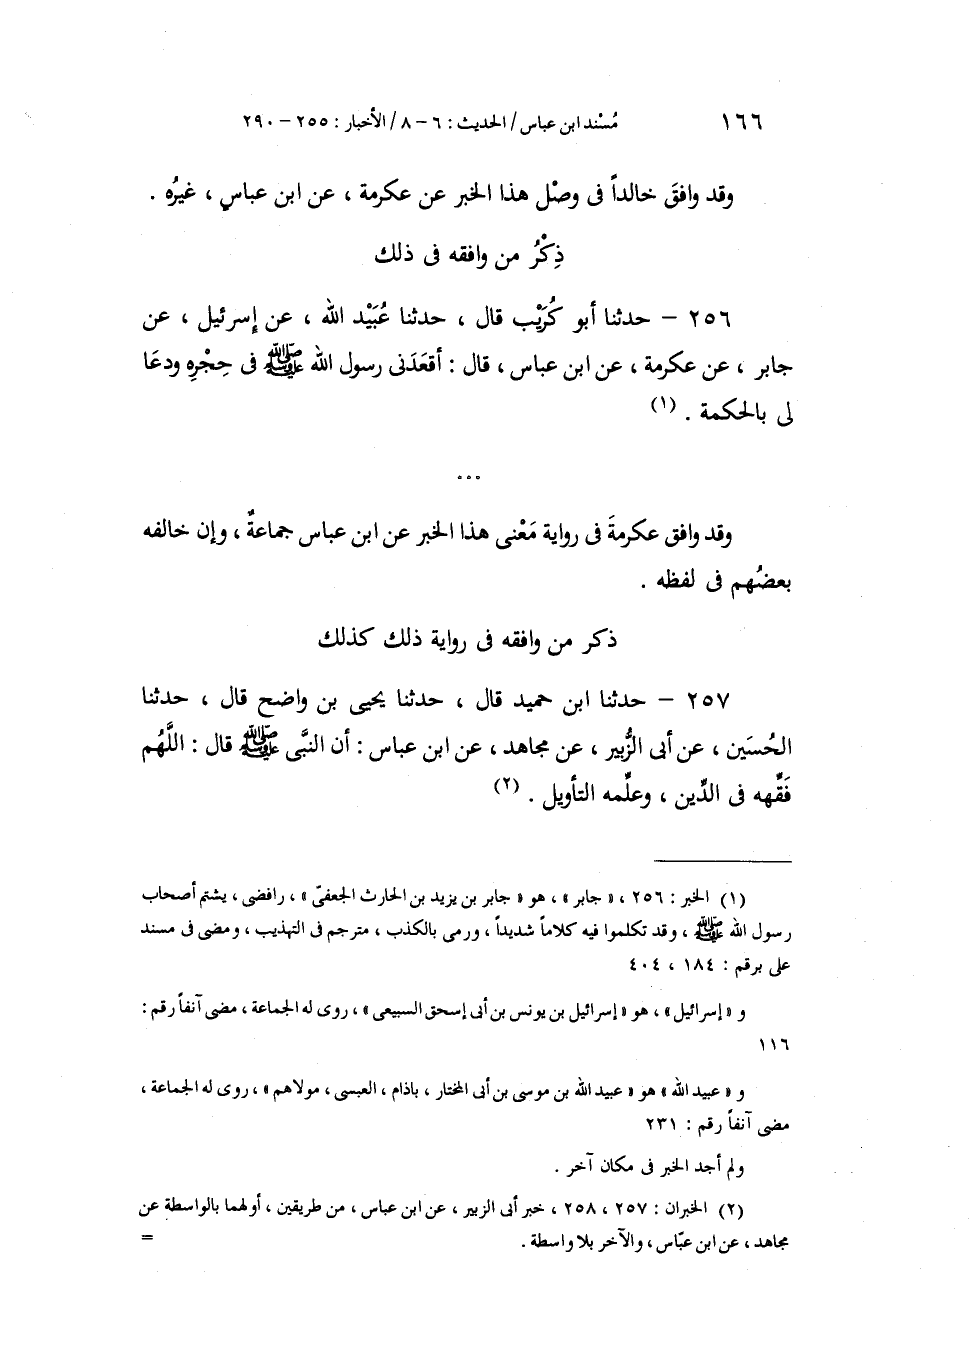 ١٦٦ مُسْند ابن عباس / الحديث : ٦ – ٨ / الأخبار : ٢٥٥ – ٢٩٠
وقد وافقَ خالداً فى وصْل هذا الخبر عن عكرمة ، عن ابن عباس ، غيرُه .
ذِكْرُ من وافقه فى ذلك
٢٥٦ – حدثنا أبو كُرَيْب قال ، حدثنا عُبَيْد الله ، عن إسرئيل ، عن
جابر ، عن عكرمة ، عن ابن عباس ، قال : أقعَدَنى رسول الله ﷺ فى حِجْرِه ودعَا
لى بالحكمة . (١)
...
وقد وافق عكرمةَ فى رواية مَعْنى هذا الخبر عن ابن عباس جماعةٌ ، وإن خالفه
بعضُهم فى لفظه .
ذكر من وافقه فى رواية ذلك كذلك
٢٥٧ – حدثنا ابن حميد قال ، حدثنا يحيى بن واضح قال ، حدثنا
الحُسَين ، عن أبى الزُّبير ، عن مجاهد ، عن ابن عباس : أن النبَّى ﷺ قال : اللَّهُم
فَقِّهه فى الدِّين ، وعلِّمه التأويل . (٢)
(١) الخبر : ٢٥٦ ، « جابر » ، هو « جابر بن يزيد بن الحارث الجعفىّ » ، رافضى ، يشتم أصحاب
رسول الله ﷺ ، وقد تكلموا فيه كلاماً شديداً ، ورمى بالكذب ، مترجم فى التهذيب ، ومضى فى مسند
على برقم : ١٨٤ ، ٤٠٤
و « إسرائيل » ، هو « إسرائيل بن يونس بن أبى إسحق السبيعى » ، روى له الجماعة ، مضى آنفاً رقم :
١١٦
و « عبيد الله » هو « عبيد الله بن موسى بن أبى المختار ، باذام ، العبسى ، مولاهم » ، روى له الجماعة ،
مضى آنفاً رقم : ٢٣١
ولم أجد الخبر فى مكان آخر .
(٢) الخبران : ٢٥٧ ، ٢٥٨ ، خبر أبى الزبير ، عن ابن عباس ، من طريقين ، أولهما بالواسطة عن
مجاهد ، عن ابن عبّاس ، والآخر بلا واسطة . =